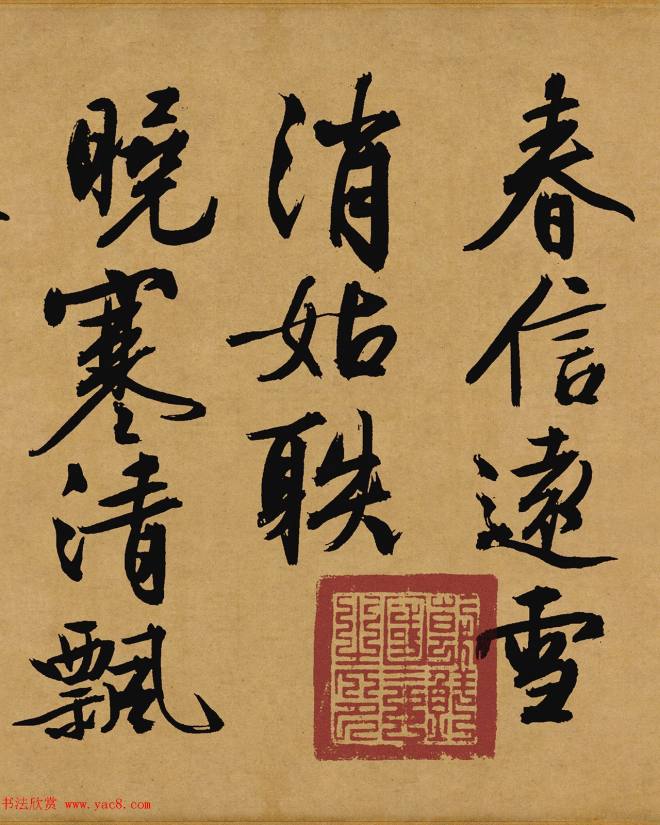 春信遠雪
消姑䠶
曉寒清飄
书法欣赏 www.yac8.com